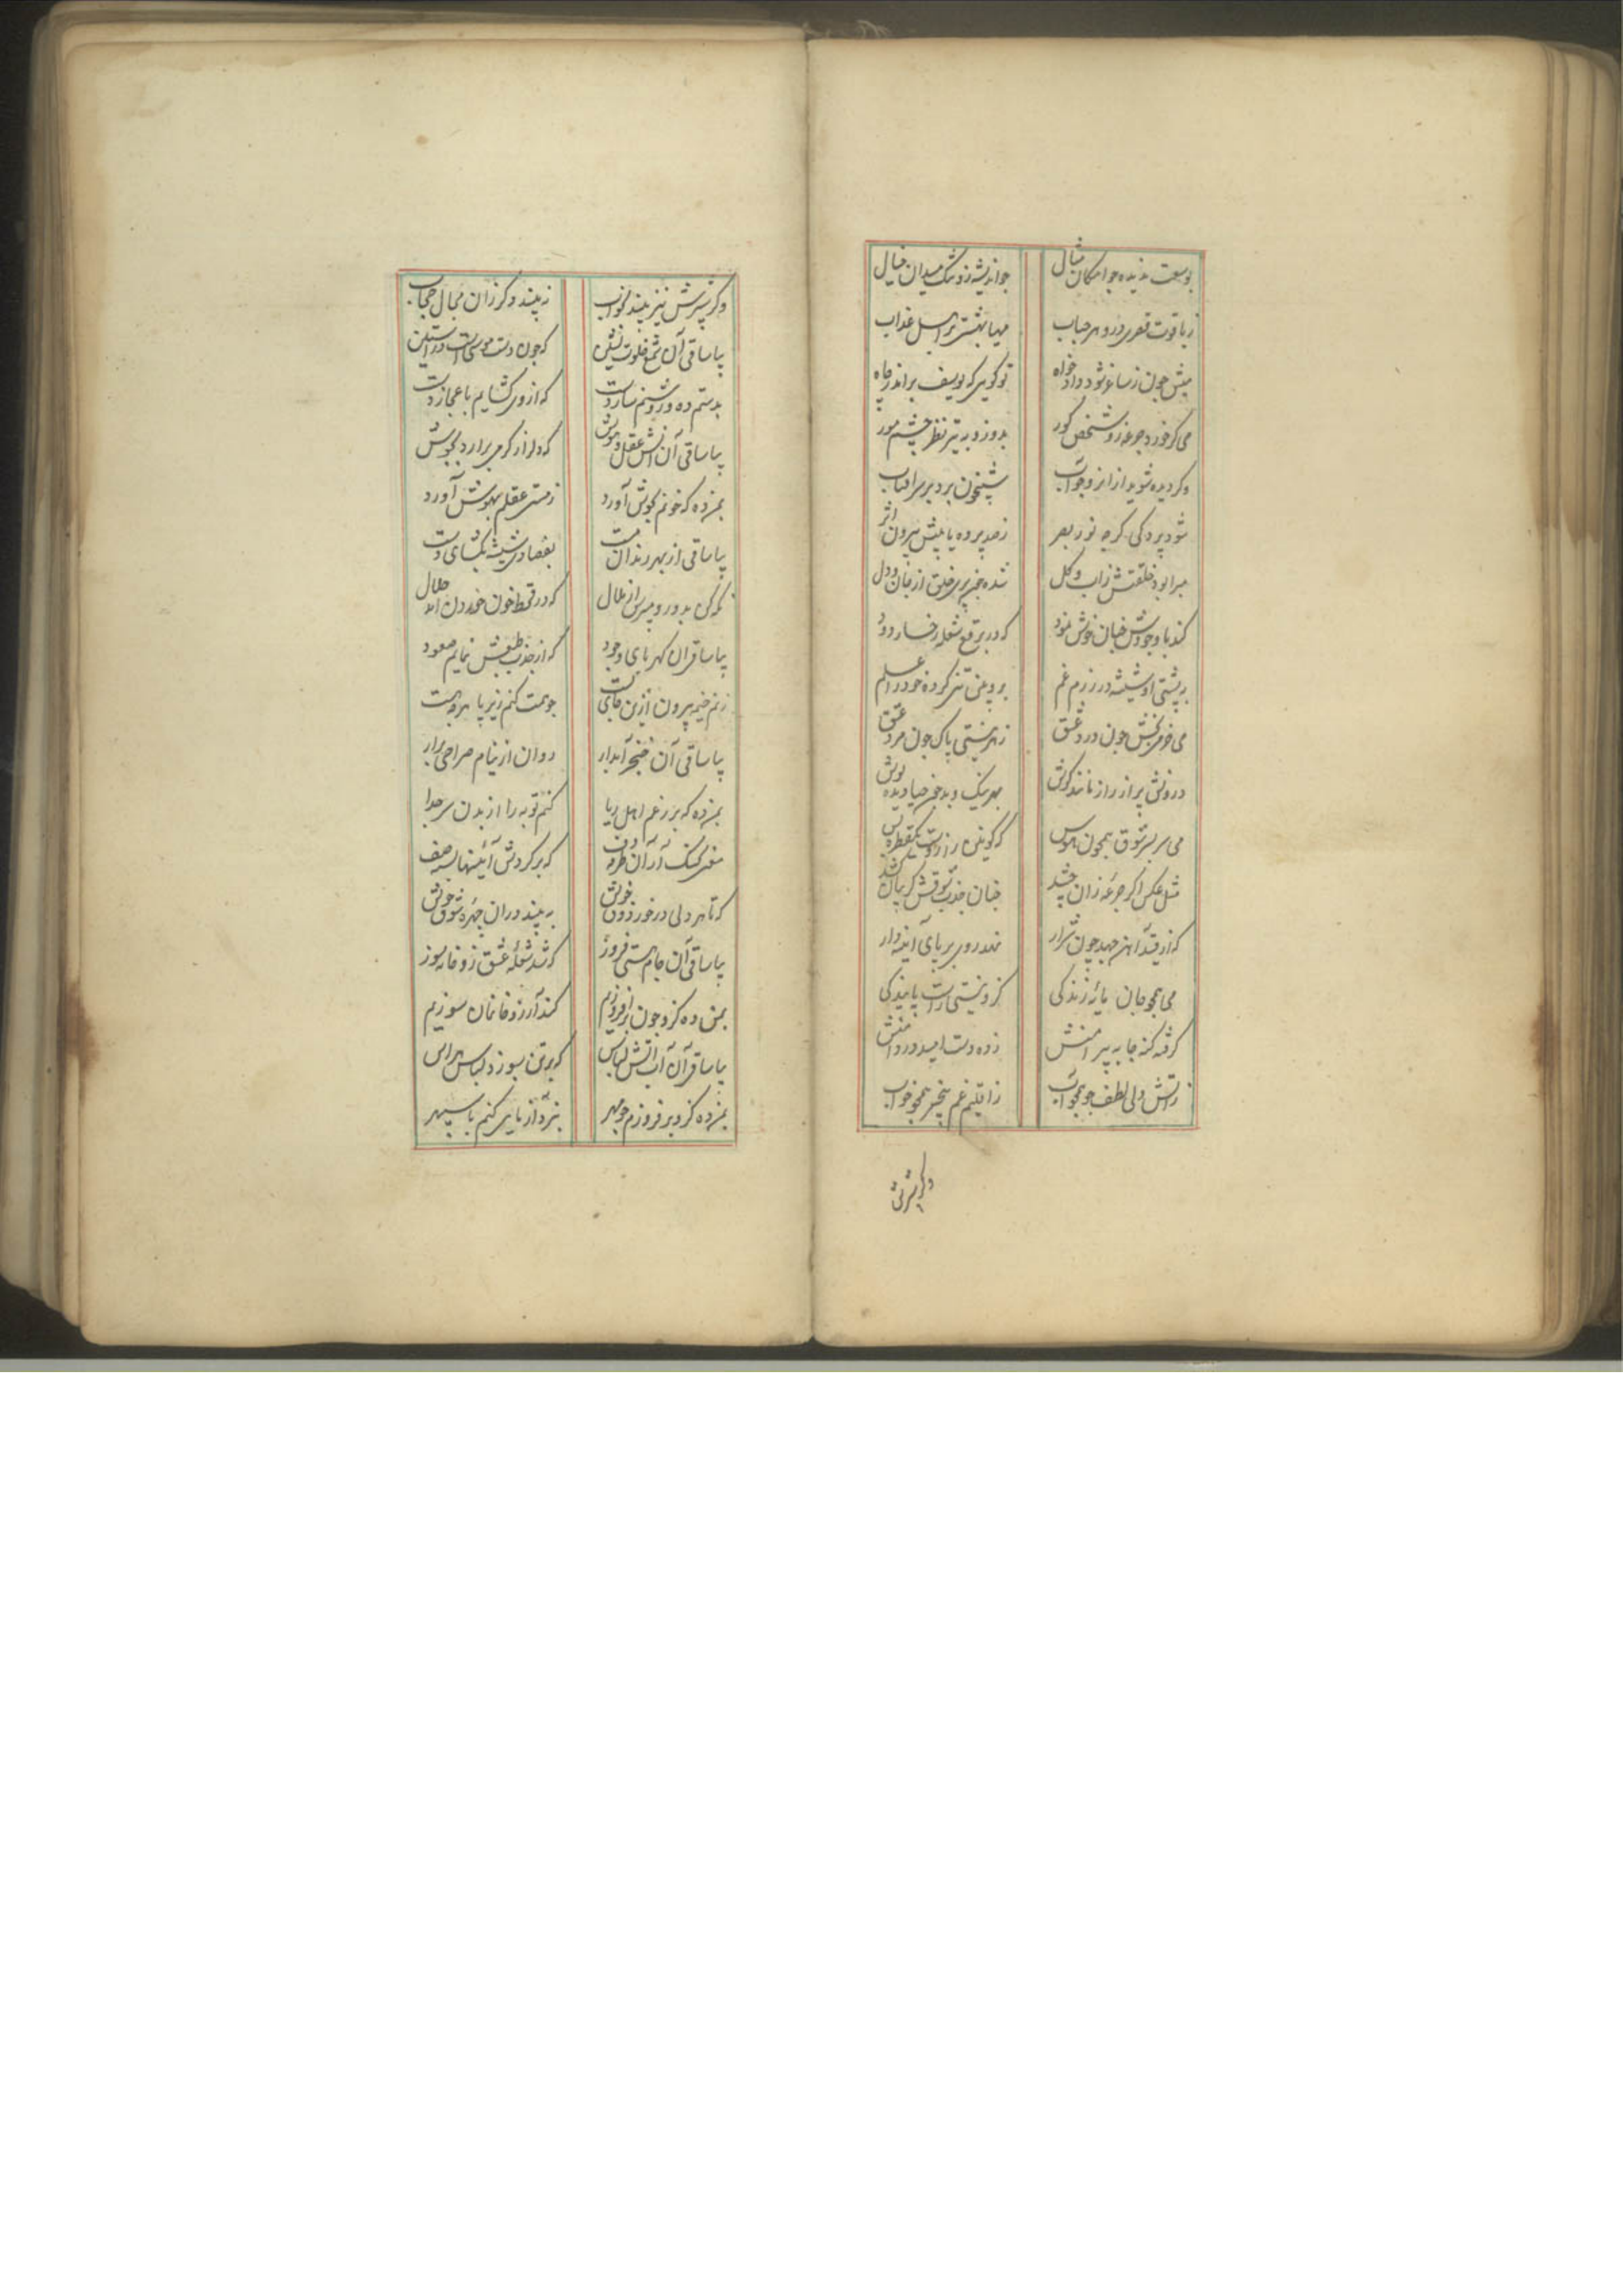 بوسعت ندیده جو امکان مثال جو اندیشه زو تنک میدان خیال
ز یاقوت قصری درو هر حباب مهیا بهشتی بر اهل عذاب
میش چون ز ساغر شود داد خواه تو کویی که یوسف براند ز چاه
می کر خورد جرعه زو شخص کور بدوزد به تیر نظر چشم مور
وکر دیده شوید از انرو جو آب شبیخون برد بر سر افتاب
شود پردکی کرچه نور بصر ز صد پرده یابیش بیرون اثر
مبرا بود خلقتش ز اب و کل شده خمیر خلق از جان و دل
کند با وجودش خیان خوش نمود که در برقع شعله رخسار دود
به پشتی او شیشه در رزم غم برو پنی تنی کرده خود را علم
می خرمی بخش جون درد عشق ز هر پستی پاک جون مرد عشق
درونش پر از راز مانند کوش بهر نیک و بد جون حیا دیده پوش
می سر بسر شوق همچون هوس که کونین را زوست یکقطره بس
مثل عکس اکر جرعه زان چشد چنان جذب شوقش کریبان کشد
که از قید آهن جهد چون شرار نهد رو بر پای آینه دار
می همچو جان مایه زندکی کزو نیستی راست پایندکی
کرفته کنه جا به پیرامنش زده دست امید در دامنش
ز آتش ولی لطف جو همجو آب ز اقلیم غم بیخبر همجو خواب
وکر پیرش
وکر پیرش نیز بیند بخواب نه بیند وکر زان جمال حجاب
بیا ساقی آن شمع خلوت نشین که جون دست موسی است در آستین
بدستم ده و روشنم ساز دست که از وی کشایم باعجاز دست
بیا ساقی آن آتش عقل و هوش که دل را ز کرمی برارد بجوش
بمن ده که خونم بجوش آورد ز مستی عقلم بهوش آورد
بیا ساقی از بهر رندان مست بفصادی شیشه بکشای دست
بدور و مپرس از ملال که در قحط خون خوردن آمد حلال
بیا ساقی آن کهربای وجود که از جذب طبعش نمایم صعود
زنم خیمه بیرون ازین جای پست جو همت کنم زیر پا هر چه هست
بیا ساقی آن خنجر آبدار روان از نیام صراحی برار
بمن ده که بر رغم اهل ریا کنم توبه را از بدن سر جدا
که بر کردش آیینها بسته صف
که تا هر دلی در خور ذوق خویش به بیند دران چهره شوق خویش
بیا ساقی آن جام هستی فروز که شد شعله عشق زو خانه سوز
بمن ده کزو جون بر افروزیم کند آرزو خانمان سوزیم
بیا ساقی آن آب آتش لباس که بر تن بسوزد لباس هراس
بمن ده کزو بر فروزم جو مهر نبرد آزمایی کنم با سپهر